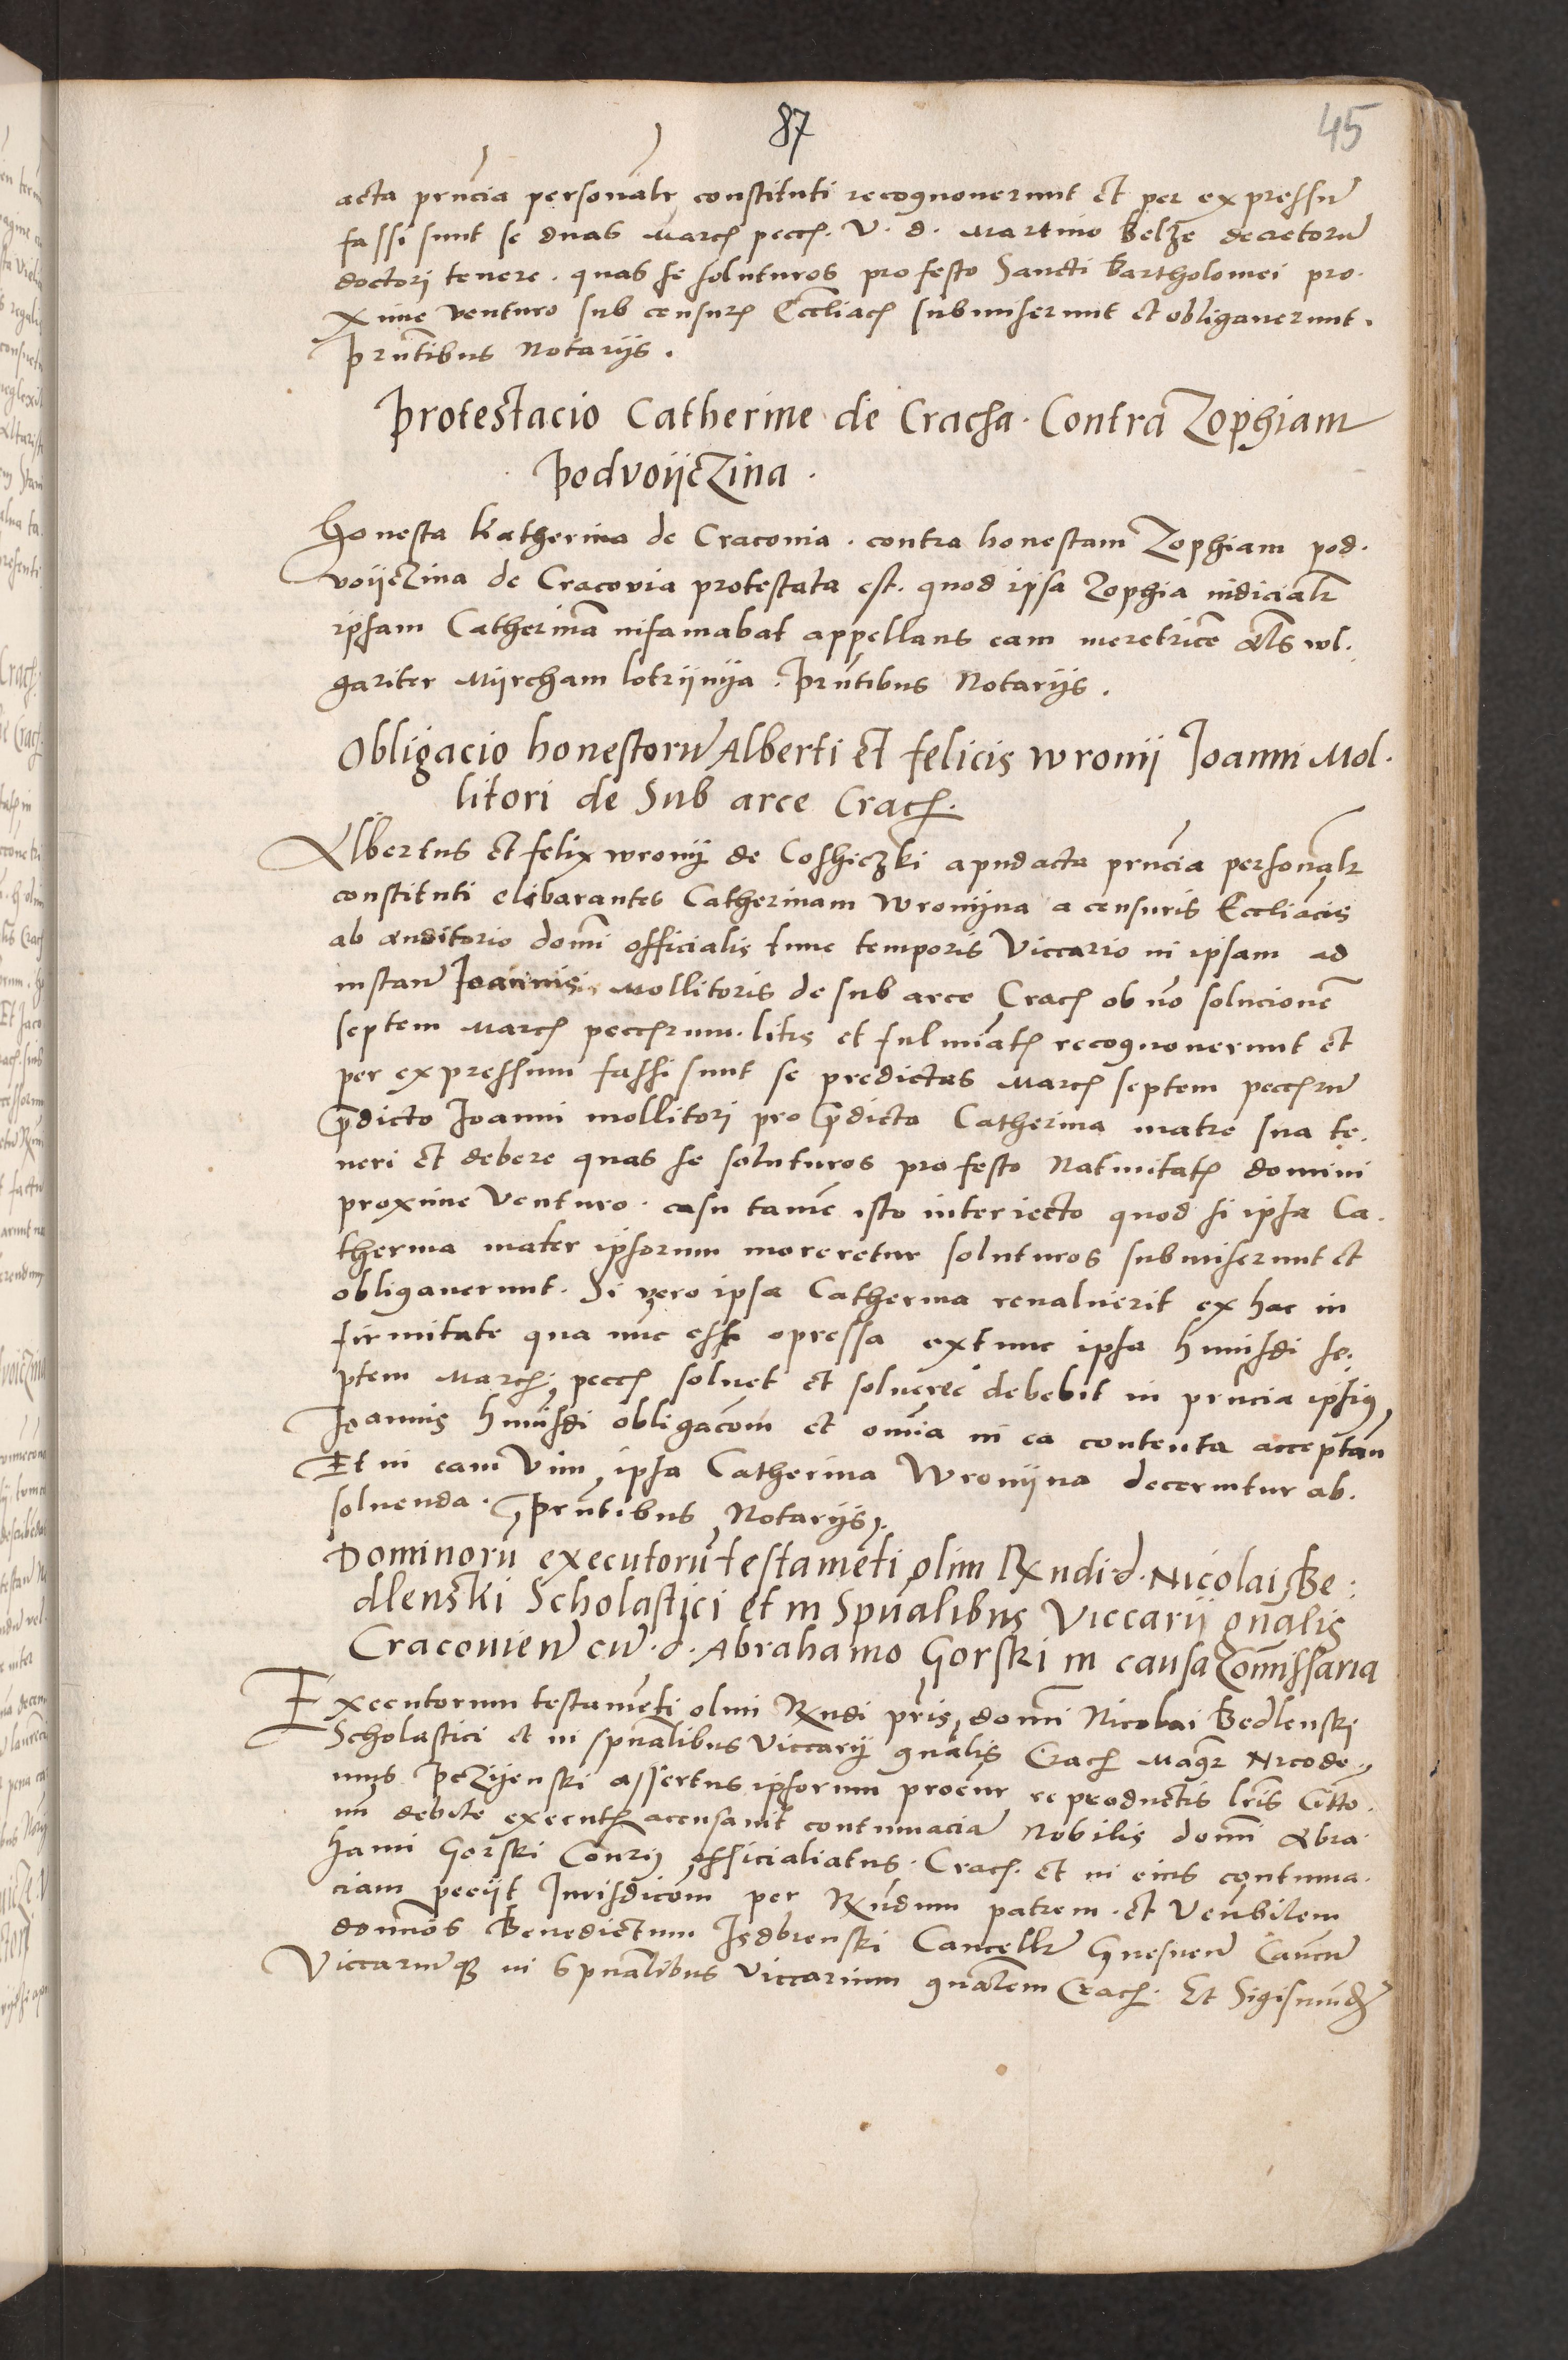 87
45
acta prncia personalr constituti recognoverunt et per expressu
fassi sunt se duas March pecch. V. d. Martino Belze decretoru
doctori tenere. quas se soluturos pro festo Sancti Bartholomei pro.
xime venturo sub censurs Eccliach submiserunt et obligaverunt.
Prntibus Notariis.
Protestacio Catherine de Cracha. Contra Zophiam
Podvoyczina.
Honesta Katherina de Craconia. contra honestam Zophiam pod.
voyczina de Cracovia protestata est. quod ipsa Zophia iudicialr
ipsam Catherina infamabat appellans eam meretrice als wl.
gariter Myrcham lotrynya. Prntibus Notariis.
Obligacio honestoru Alberti et felicis wronij Joanni Mol.
litori de Sub arce Crach.
Albertus et felix wronij de Coshiczki apud acta prncia personalr
constituti elibarantes Catherinam Wronyna a censuris Eccliacis
ab auditorio domi officialis tunc temporis Viccario in ipsam ad
instan Joannis Mollitoris de sub arce Crach ob no solucione
septem March pecchrum. litis et fulminats recognoverunt et
per expressum fassi sunt se predictas March septem pecchru
pdicto Joanni mollitori pro pdicta Catherina matre sua te.
neri et debere quas se soluturos pro festo Natiuitats domini
proxime Venturo. casu tame isto interiecto quod si ipsa Ca.
therina mater ipsorum moreretur soluturos submiserunt et
obligaverunt. Si vero ipsa Catherina revaluerit ex hac in
firmitate qua nuc est opressa extunc ipsa huiusdi se.
ptem March. pecch soluet et soluere debebit in prncia ipsius
Joannis huiusdi obligacom et omia in ea contenta acceptan
Et in eam Vim ipsa Catherina Wronyna decernitur ab.
soluenda. Prntibus Notariis.
Dominoru executoru testameti olim Rxndi d. Nicolai Be
dlenski Scholastici et in Spualibus Viccarii gnalis
Cracovien cu d. Abrahamo Gorski in causa Comissaria
Executorum testameti olim Rxndi pris domi Nicolai Bedlenski
Scholastici et in spualibus Viccarij gnalis Crach Magr Nicode
mus Pczyenski assertus ipsorum procur reproductis lris Citto.
nu debite executs accusavit contumacia Nobilis domi Abra
hami Gorski officialiatus. Crach. et in eius contuma.
ciam peciit Jurisdicom per Rxndum patrem. et Venbilem
domos Benedictum Isdbienski Cancellr Gnesnen
Viccariu in Spualibus Viccarium gnalem Crach. Et Sigismud